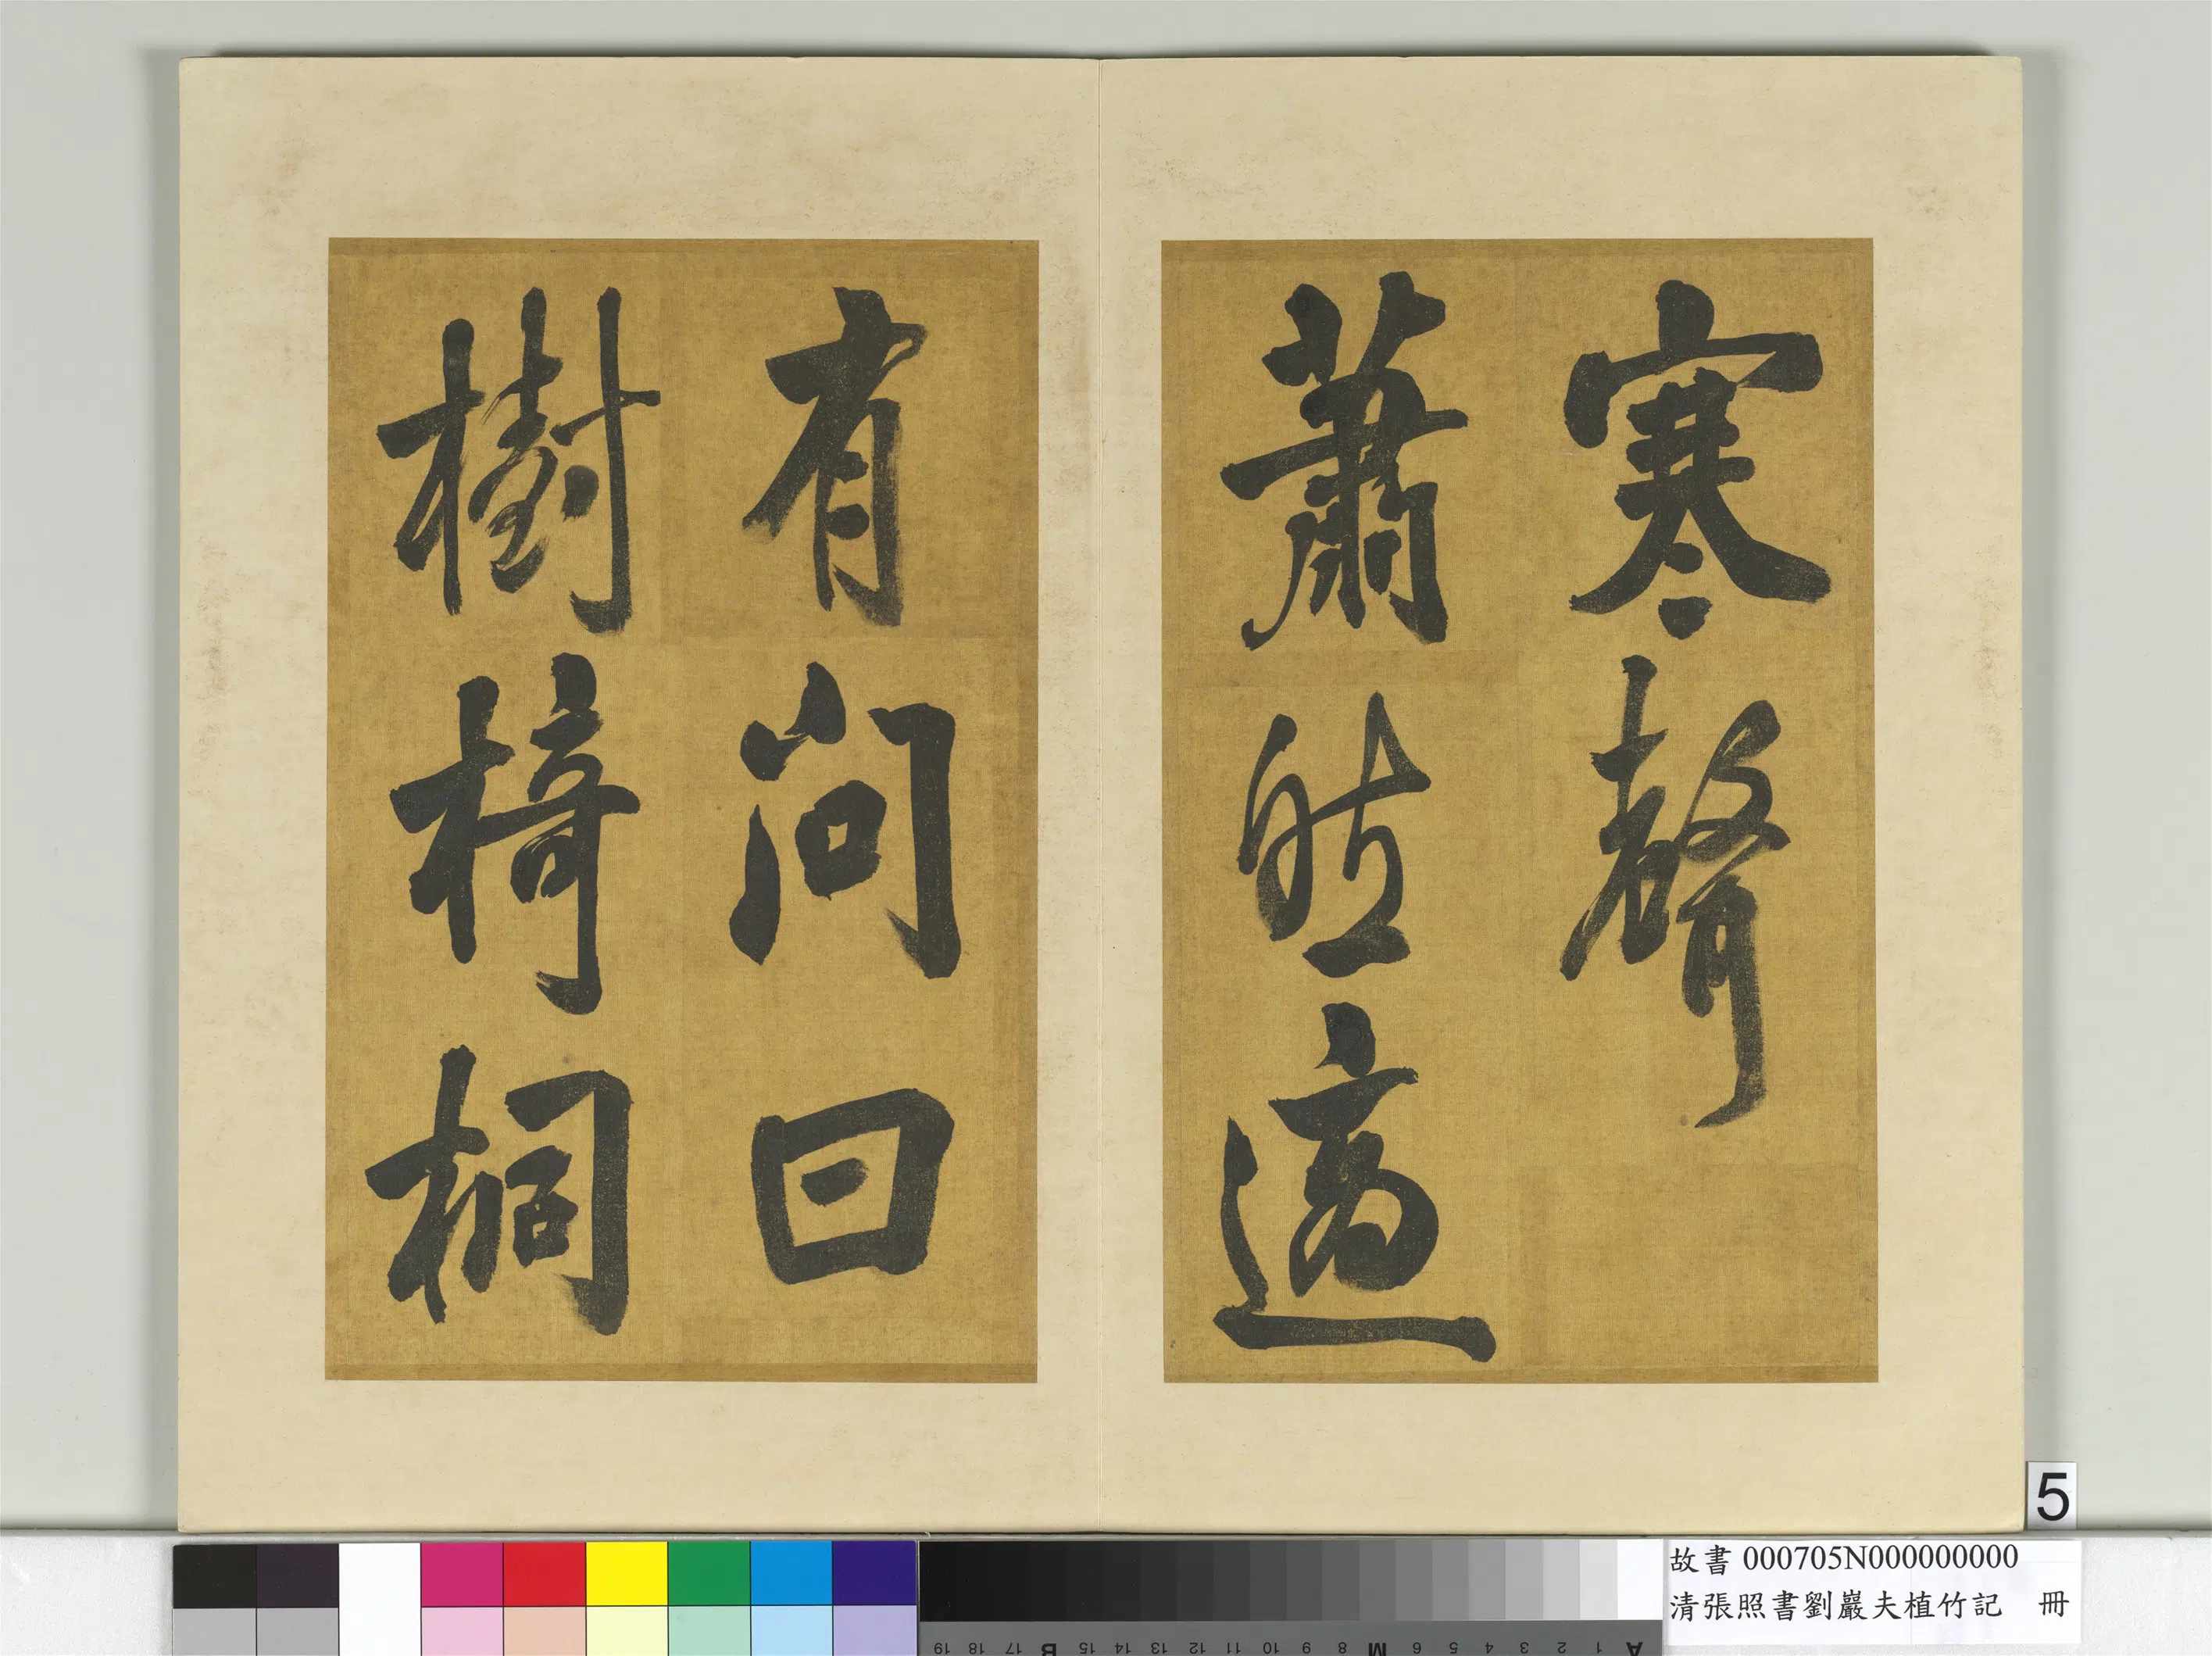 寒聲
蕭然適
有問曰
樹椅桐
5
故書 000705N000000000
清張照書劉巖夫植竹記 冊
A 1 2 3 4 5 6 M 8 9 10 11 12 13 14 15 B 17 18 19